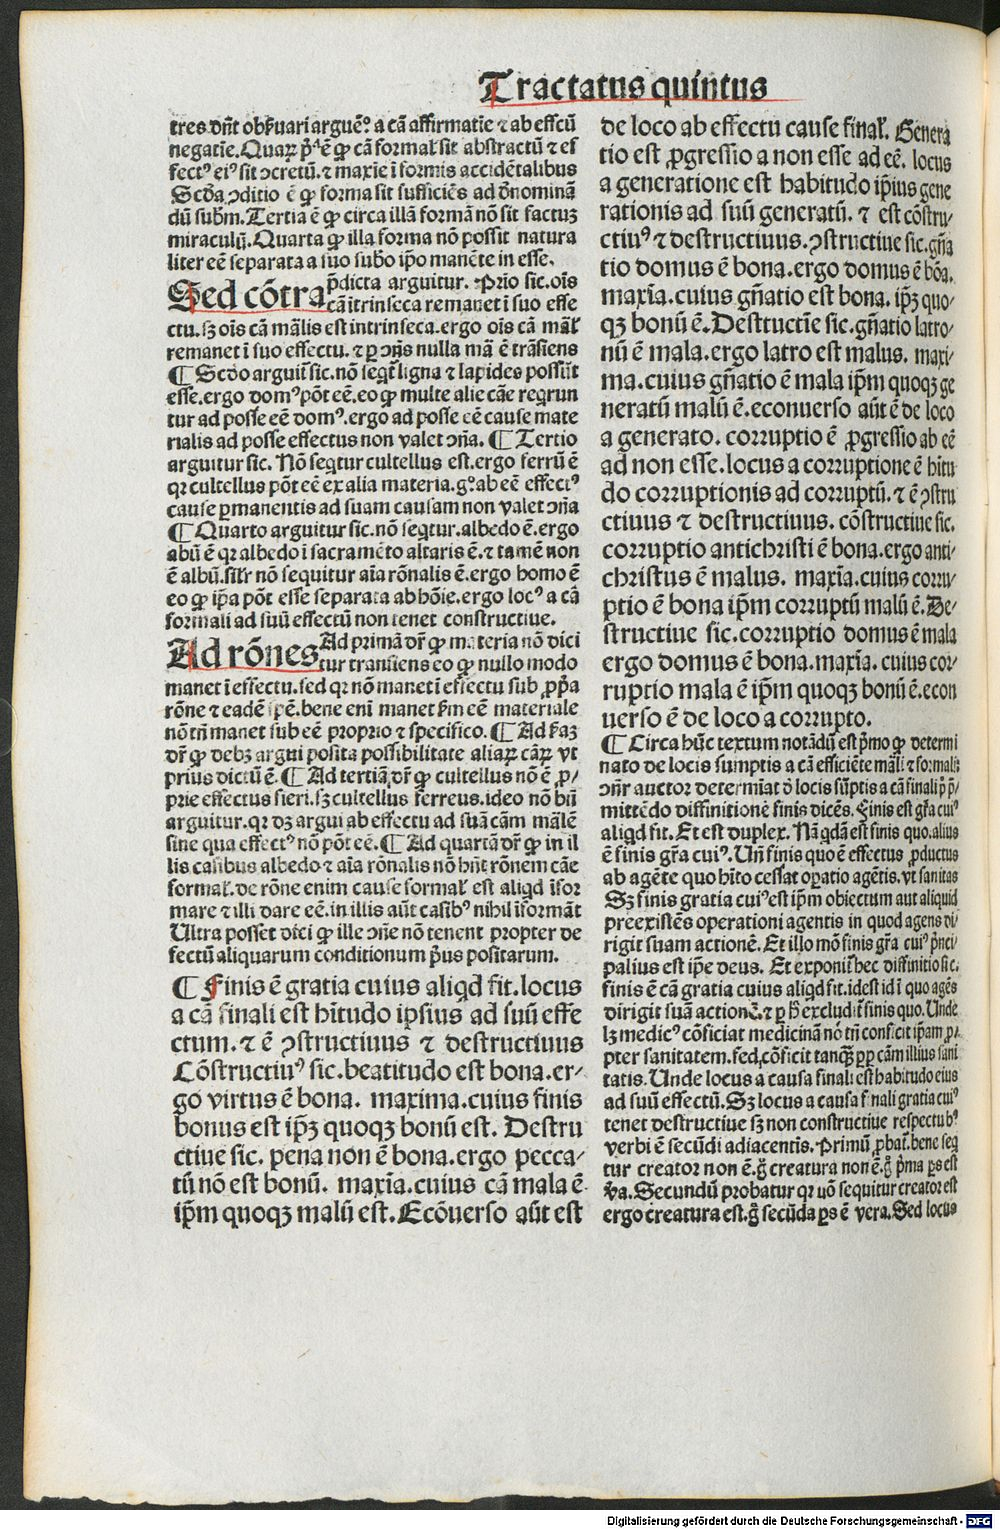 Tractatus quintus
tres dn̄t obẜuari arguēꝰ. a cā affirmatīe ⁊ ab effcū
negatīe. Quaꝝ pͥᵃ ē ꝙ cā formał sit abstractū ⁊ ef
fectꝰ eiꝰ sit ↄcretū. ⁊ maxīe ī formis accidētalibus
Scďa ↄditio ē ꝙ forma sit sufficiēs ad ďnominā
dū subm̄. Tertia ē ꝙ circa illā formā nō sit factuꝫ
miraculū. Quarta ꝙ illa forma nō possit natura
liter eē separata a suo subō ip̄o manēte in esse.
Sed cōtra p̄dicta arguitur. Prīo sic. oīs
cā ītrinseca remanet ī suo effe
ctu. sꝫ oīs cā mālis est intrinseca. ergo oīs cā māł
remanet ī suo effectu. ⁊ ꝑ ↄn̄s nulla mā ē trāsiens
¶ Scďo arguiť sic. nō seqt̄ ligna ⁊ lapides possūt
esse. ergo domꝰ pōt eē. eo ꝙ multe alie cāe reqrun
tur ad posse eē domꝰ. ergo ad posse eē cause mate
rialis ad posse effectus non valet ↄn̄a. ¶ Tertio
arguitur sic. Nō seqtur cultellus est. ergo ferrū ē
qꝛ cultellus pōt eē ex alia materia. gͦ. ab eē effectꝰ
cause ꝑmanentis ad suam causam non valet ↄn̄a
¶ Quarto arguitur sic. nō seqtur. albedo ē. ergo
albū ē qꝛ albedo ī sacramēto altaris ē. ⁊ tamē non
ē albū. siłr nō sequitur aīa rōnalis ē. ergo homo ē
eo ꝙ ip̄a pōt esse separata ab hoīe. ergo locꝰ a cā
formali ad suū effectū non tenet constructiue.
Ad rōnes Ad primā dr̄ ꝙ materia nō dici
tur transiens eo ꝙ nullo modo
manet ī effectu. sed qꝛ nō manet ī effectu sub ꝓp̄a
rōne ⁊ eadē spē. bene enī manet ẜm eē materiale
nō tn̄ manet sub eē proprio ⁊ specifico. ¶ Ad ẜcaꝫ
dr̄ ꝙ debꝫ argui posita possibilitate aliaꝝ cāꝝ vt
prius dictū ē. ¶ Ad tertiā dr̄ ꝙ cultellus nō ē ꝓ/
prie effectus fieri. sꝫ cultellus ferreus. ideo nō bn̄
arguitur. qꝛ dꝫ argui ab effectu ad suā cām mālē
sine qua effectꝰ nō pōt eē. ¶ Ad quartā dr̄ ꝙ in il
lis casibus albedo ⁊ aīa rōnalis nō hn̄t rōnem cāe
formał. de rōne enim cause formał est aliqd īfor
mare ⁊ illi dare eē. in illis aūt casibꝰ nihil īformāt
Ultra posset dici ꝙ ille ↄn̄e nō tenent propter de
fectū aliquarum conditionum pͥus positarum.
¶ Finis ē gratia cuius aliqd fit. locus
a cā finali est hītudo ipsius ad suū effe
ctum. ⁊ ē ↄstructiuus ⁊ destructiuus
Cōstructiuꝰ sic. beatitudo est bona. er⸗
go virtus ē bona. maxima. cuius finis
bonus est ip̄ꝫ quoqꝫ bonū est. Destru
ctiue sic. pena non ē bona. ergo pecca⸗
tū nō est bonū. maxīa. cuius cā mala ē
ip̄m quoqꝫ malū est. Ecōuerso aūt est
de loco ab effectu cause finał. Genera
tio est ꝓgressio a non esse ad eē. locus
a generatione est habitudo ip̄ius gene
rationis ad suū generatū. ⁊ est cōstru⸗
ctiuꝰ ⁊ destructiuus. ↄstructiue sic. gn̄a
tio domus ē bona. ergo domus ē bōa.
maxīa. cuius gn̄atio est bona. ip̄ꝫ quo⸗
qꝫ bonū ē. Destructīe sic. gn̄atio latro⸗
nū ē mala. ergo latro est malus. maxi⸗
ma. cuius gn̄atio ē mala ip̄m quoqꝫ ge
neratū malū ē. econuerso aūt ē de loco
a generato. corruptio ē ꝓgressio ab eē
ad non esse. locus a corruptione ē hītu
do corruptionis ad corruptū. ⁊ ē ↄstru
ctiuus ⁊ destructiuus. cōstructiue sic.
corruptio antichristi ē bona. ergo anti⸗
christus ē malus. maxīa. cuius corru⸗
ptio ē bona ip̄m corruptū malū ē. De⸗
structiue sic. corruptio domus ē mala
ergo domus ē bona. maxīa. cuius cor⸗
ruptio mala ē ip̄m quoqꝫ bonū ē. econ
uerso ē de loco a corrupto.
¶ Circa hūc textum notādū est pͥmo ꝙ determi
nato de locis sumptis a cā efficiēte māli ⁊ formali
ↄn̄r auctor determīat ď locis sūptis a cā finali pͥ p̄/
mittēdo diffinitionē finis dicēs. Finis est gr̄a cuiꝰ
aliqd fit. Et est duplex. Nā qdā est finis quo. alius
ē finis gr̄a cuiꝰ. Un̄ finis quo ē effectus ꝓductus
ab agēte quo hīto cessat oꝑatio agētis. vt sanitas
Sꝫ finis gratia cuiꝰ est ip̄m obiectum aut aliquid
preexistēs operationi agentis in quod agens di
rigit suam actionē. Et illo mō finis gr̄a cuiꝰ pͥnci
palius est ip̄e deus. Et exponiť hec diffinitio sic.
finis ē cā gratia cuius aliqd fit. idest id ī quo agēs
dirigit suam actionē. ⁊ ꝑ ħ excludiť finis quo. Unde
lꝫ medicꝰ cōficiat medicinā nō tn̄ conficit ip̄am ꝓ/
pter sanitatem. sed cōficit tanqꝫ ꝑp cām illius sani
tatis. Unde locus a causa finali est habitudo eius
ad suū effectū. Sꝫ locus a causa finali gratia cuiꝰ
tenet destructiue sꝫ non constructiue respectu bꝰ
verbi ē secūdi adiacentis. Primū ꝓbat̄. bene seq
tur creator non ē. gͦ creatura non ē. gͦ pͥma ꝑs est
v̄a. Secundū probatur qꝛ nō sequitur creator est
ergo creatura est. gͦ secūda ꝑs ē vera. Sed locus
Digitalisierung gefördert durch die Deutsche Forschungsgemeinschaft - DFG